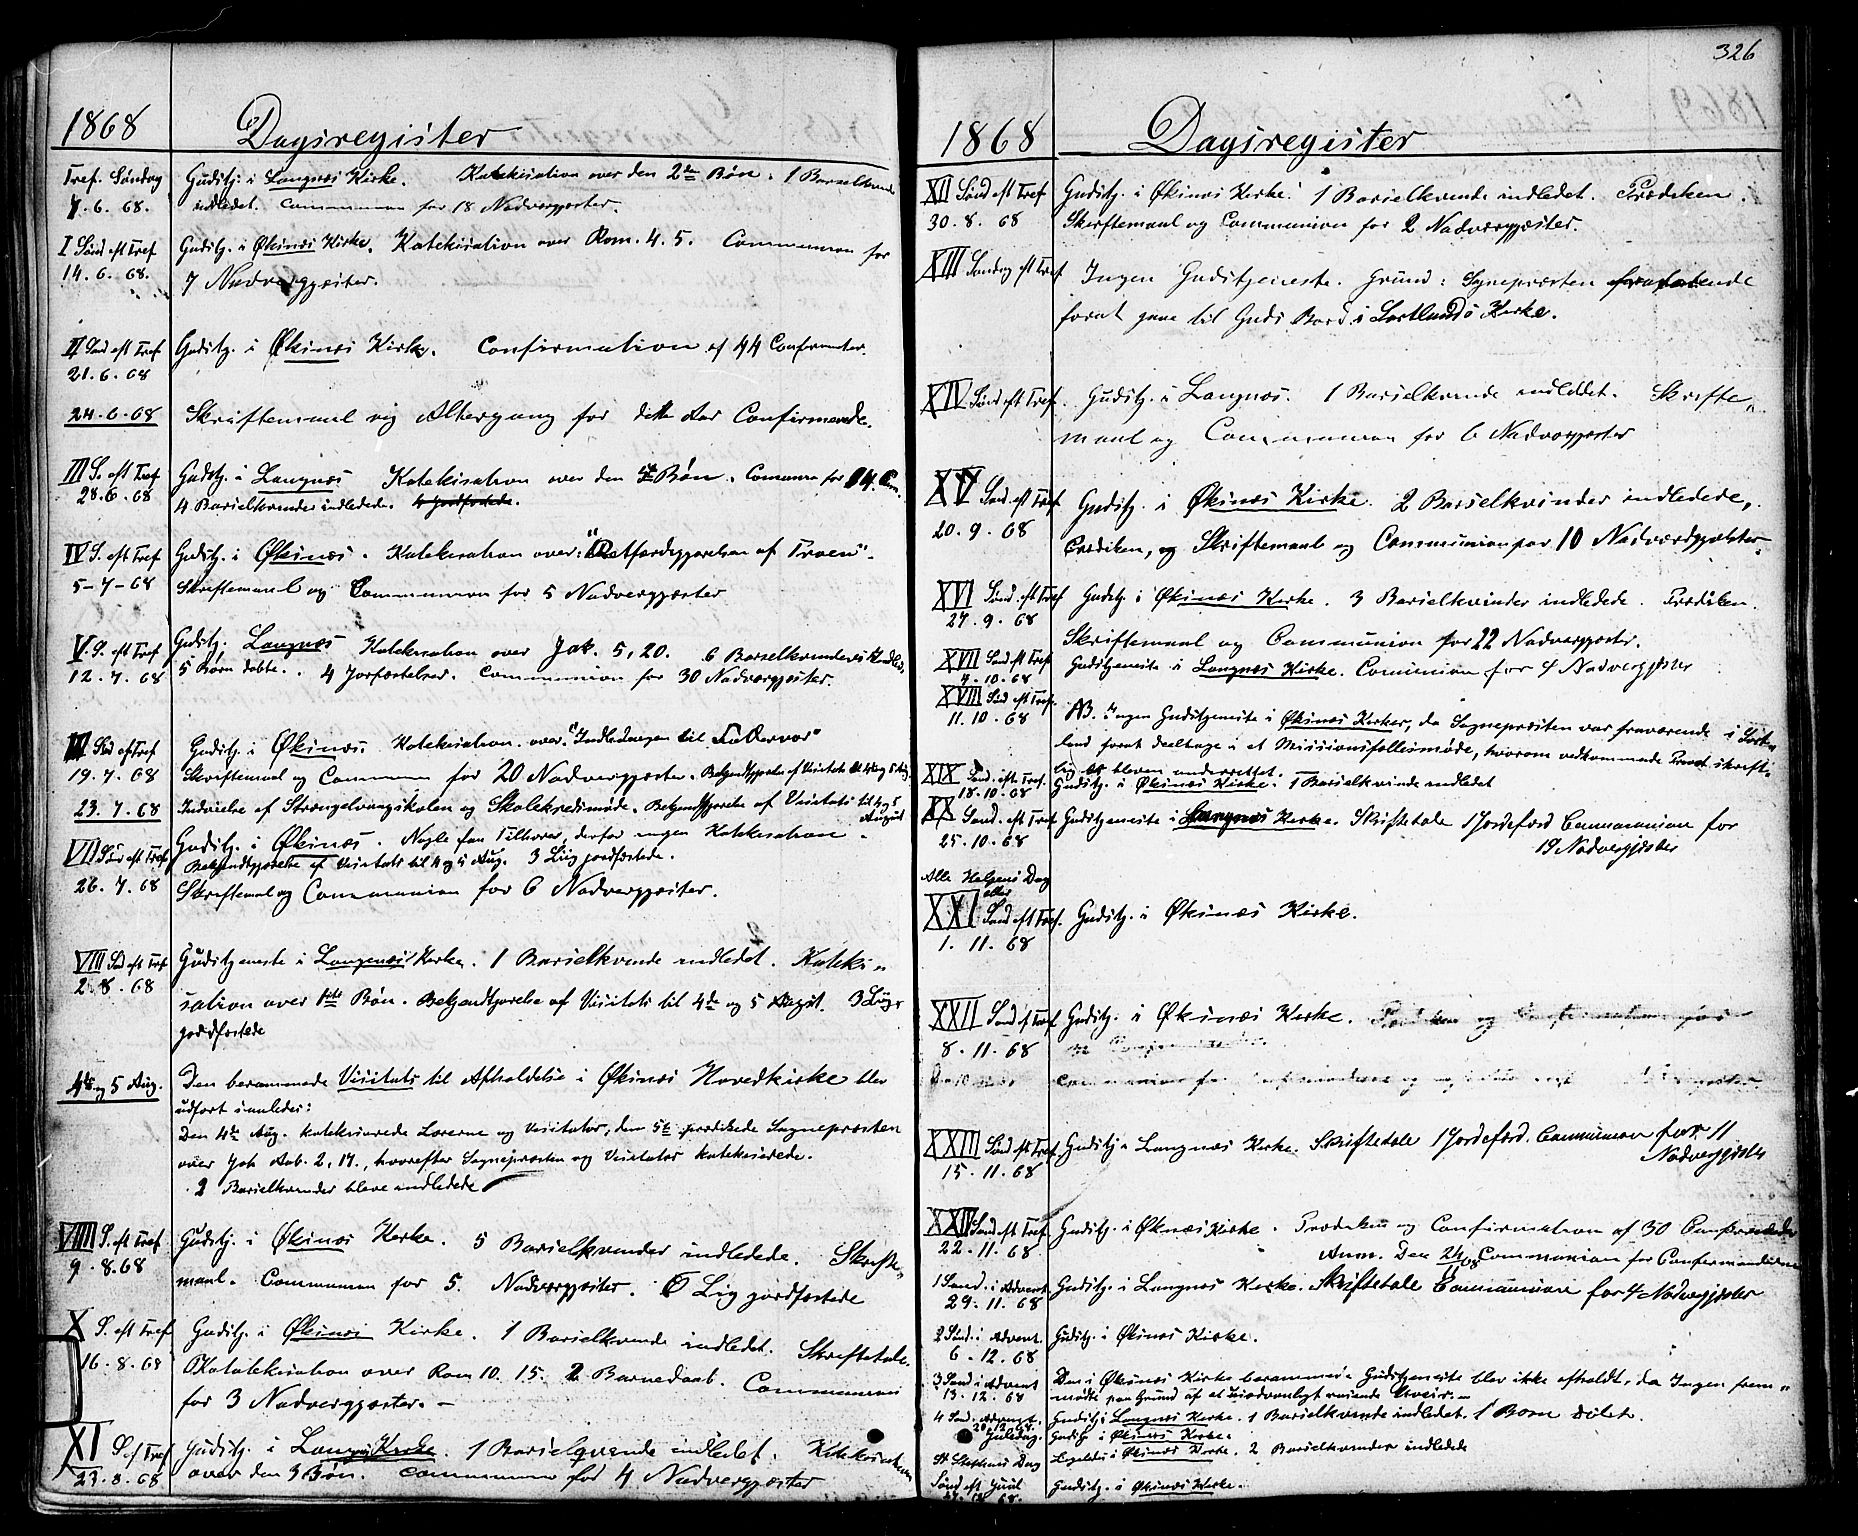 326
1868 Dagsregister
Tref. Søndag Gudstj. i Langnæs Kirke. Katekisation over den 2den Bøn. 1 Barselkvinde
7.6.68. indledet. Communion for 18 Nadvergjæster.
I Sønd eft Tref Gudstj. i Øksnæs Kirke. Katekisation over Rom. 4.5. Communion for
14.6.68. 7 Nadvergjæster.
II Sønd eft Tref Gudstj. i Øksnæs Kirke. Confirmation af 44 Confirmanter.
21.6.68
24.6.68 Skriftemaal og Altergang for dette Aar Confirmerede.
III S. eft Tref Gudstj. i Langnæs Katekisation over den 5te Bøn. Communion for 14
28.6.68 4 Barselkvinder indledede. 4 jordfæstede.
IV S. eft Tref Gudstj. i Øksnæs. Katekisation over: "Retfærdiggjørelsen af Troen".
5-7-68 Skriftemaal og Communion for 5 Nadvergjæster
V. S. eft Tref Gudstj. Langnæs Katekisation over Jak. 5,20. 6 Barselkvinder indled.
12.7.68 5 Børn døbte. 4 Jorfæstelser. Communion for 30 Nadvergjæster.
Sønd eft Tref Gudstj. i Øksnæs. Katekisation over "Indledningen til Fadervor"
19.7.68 Skriftemaal og Communion for 20 Nadvergjæster. Bekjendtgjørelse af Visitats til 4 og 5 Aug.
23.7.68 Indvielse af Strengelvaagskolen og Skolekredsmøde. Bekjendtgjørelse af Visitats til 4 og 5 August
VII Sønd eft Tref Gudstj. i Øksnæs. Nogle faa Tilhører, derfor ingen Katekisation.
Bekjendtgjørelse af Visitats til 4 og 5 Aug. 3 Liig jordfæstede.
26.7.68 Skriftemaal og Communion for 6 Nadvergjæster.
VIII Sønd eft Tref Gudstjeneste i Langenæs Kirke. 1 Barselkvinde indledet. Kateki-
2.8.68 sation over 6te Bøn. Bekjendtgjørelse af Visitats til 4de og 5 August. 3 Liig
jordfæstede
4de og 5 Aug. Den berammede Visitats til Afholdelse i Øksnæs Hovedkirke blev
udført saaledes:
Den 4de Aug. katekiserede Lærerne og Visitator, den 5te prædikede Sognepræsten
over Joh Aab. 2,17., hvorefter Sognepræsten og Visitator katekiserede.
2 Barselkvinder bleve indledede
VIIII S. eft Tref Gudstj. i Øksnæs Kirke. 5 Barselkvinder indledede. Skrifte-
9.8.68 maal. Communion for 5. Nadvergjæster. 6 Lig jordfæstede
X S. eft Tref Gudstj. i Øksnæs Kirke. 1 Barselkvinde indledet. Skriftetale.
16.8.68 Katekisation over Rom 10.15. 2 Barnedaab. Communion
for 3 Nadvergjæster. -
XI S. ef Tref Gudstj. i Langnæs Kirke. 1 Barselqvinde indledet. Katekisation
23.8.68 over den 3 Bøn. Communion for 4 Nadvergjæster
1868 Dagsregister
XII Sønd eft Tref Gudstj. i Øksnæs Kirke. 1 Barselkvinde indledet. Prædiken.
30.8.68 Skriftemaal og Communion for 2 Nadvergjæster.
XIII Søndag eft Tref Ingen Gudstjeneste. Grund: Sognepræsten fraværende
forat gaae til Guds Bord i Sortlands Kirke.
XIV Sønd eft Tref Gudstj. i Langnæs. 1 Barselkvinde indledet. Skrifte-
maal og Communion for 6 Nadvergjæster
XV Sønd. eft Tref Gudstj. i Øksnæs Kirke. 2 Barselkvinder indledede.
20.9.68 Prædiken, og Skriftemaal og Communion for 10 Nadvergjæster.
XVI Sønd. eft Tref Gudstj. i Øksnæs Kirke. 3 Barselkvinder indledede. Prædiken.
27.9.68 Skriftemaal og Communion for 22 Nadvergjæster.
XVII Sønd eft Tref Gudstjeneste i Langnæs Kirke. Comunion for 4 Nadvergjester
4.10.68
XVIII Sønd eft Tref NB. Ingen Gudstjeneste i Øksnæs Kirke, da Sognepræsten var fraværende i Sort-
11.10.68 land forat deeltage i et Missionsfællesmøde, hvorom vedkommende Provst skrift-
lig er bleven underrettet.
XIX Sønd. eft. Tref. Gudstj. i Øksnæs Kirke. 1 Barselkvinde indledet
18.10.68
XX Sønd. eft Tref Gudstjeneste i Langnæs Kirke. Skriftetale 1 Jordefærd Communion for
25.10.68 19 Nadvergjester
Alle Helgens Dag
eller
XXI Sønd eft Tref. Gudstj. i Øksnæs Kirke.
1.11.68
XXII Sønd ef Tref Gudstj. i Øksnæs Kirke. Prædiken og
8.11.68
Communion for
XXIII Sønd eft Tref Gudstj i Langnæs Kirke. Skriftetale 1 Jordefærd. Communion for 11
15.11.68 Nadvergjester
XXIV Sønd eft Tref Gudstj. i Øksnæs Kirke. Prædiken og Confirmation af 30 Confirmander
22.11.68 Anm. Den 24/11 68 Communion for Confirmanderne
1 Sønd. i Advent Gudstj. i Langnæs Kirke. Skriftetale Communion for 4 Nadvergjester
29.11.68
2 Sønd. i Advent. Gudstj. i Øksnæs Kirke.
6.12.68
3 Sønd i Advent Den i Øksnæs Kirke berammede Gudstjeneste blev ikke afholdt, da Ingen frem-
13.12.68 mødte paa Grund af et usædvanligt rasende Uveir. -
4 Sønd. Advent. Gudstj i Langnæs Kirke. 1 Barselkvinde indledet. 1 Barn døbt.
20.12.68
Juledag. Gudstj. i Øksnæs Kirke.
St Stephens Dag Ligeledes i Øksnæs Kirke. 2 Barselkvinder indledede
Sønd eft Juul Gudstj. i Øksnæs Kirke.